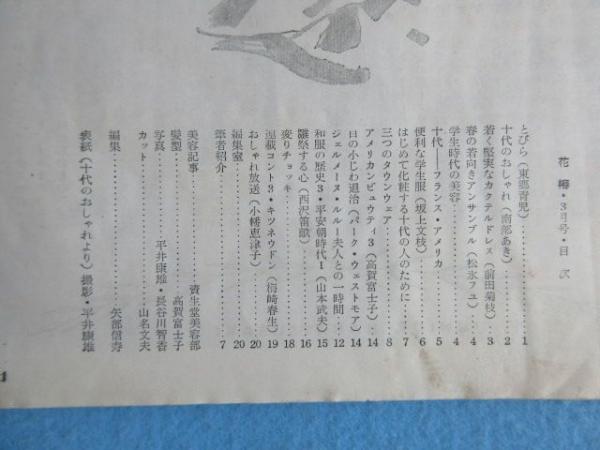 花椿・3月号・目次
とびら（東郷青児）……1
十代のおしゃれ（南部あき）……2
若く堅実なカクテルドレス（前田菊枝）……3
春の若向きアンサンブル（松永フユ）……4
学生時代の美容……4
十代――フランス・アメリカ……5
便利な学生服（坂上文枝）……6
はじめて化粧する十代の人のために……7
三つのタウンウェア……8
アメリカンビュウティ3（高賀富士子）……14
目の小じわ退治（パーク・ウェストモア）……14
ジェルメーヌ・ルルー夫人との一時間……12
和服の歴史3・平安朝時代1（山本武夫）……15
雛祭する心（西沢笛畝）……16
変りチョッキ……18
連載コント3・キツネウドン（梅崎春生）……19
おしゃれ放送（小幡恵津子）……20
編集室……20
筆者紹介……7
美容記事……資生堂美容部
髪型……高賀富士子
写真……平井康雄・長谷川智香
カット……山名文夫
編集……矢部信寿
表紙（十代のおしゃれより）撮影・平井康雄
1